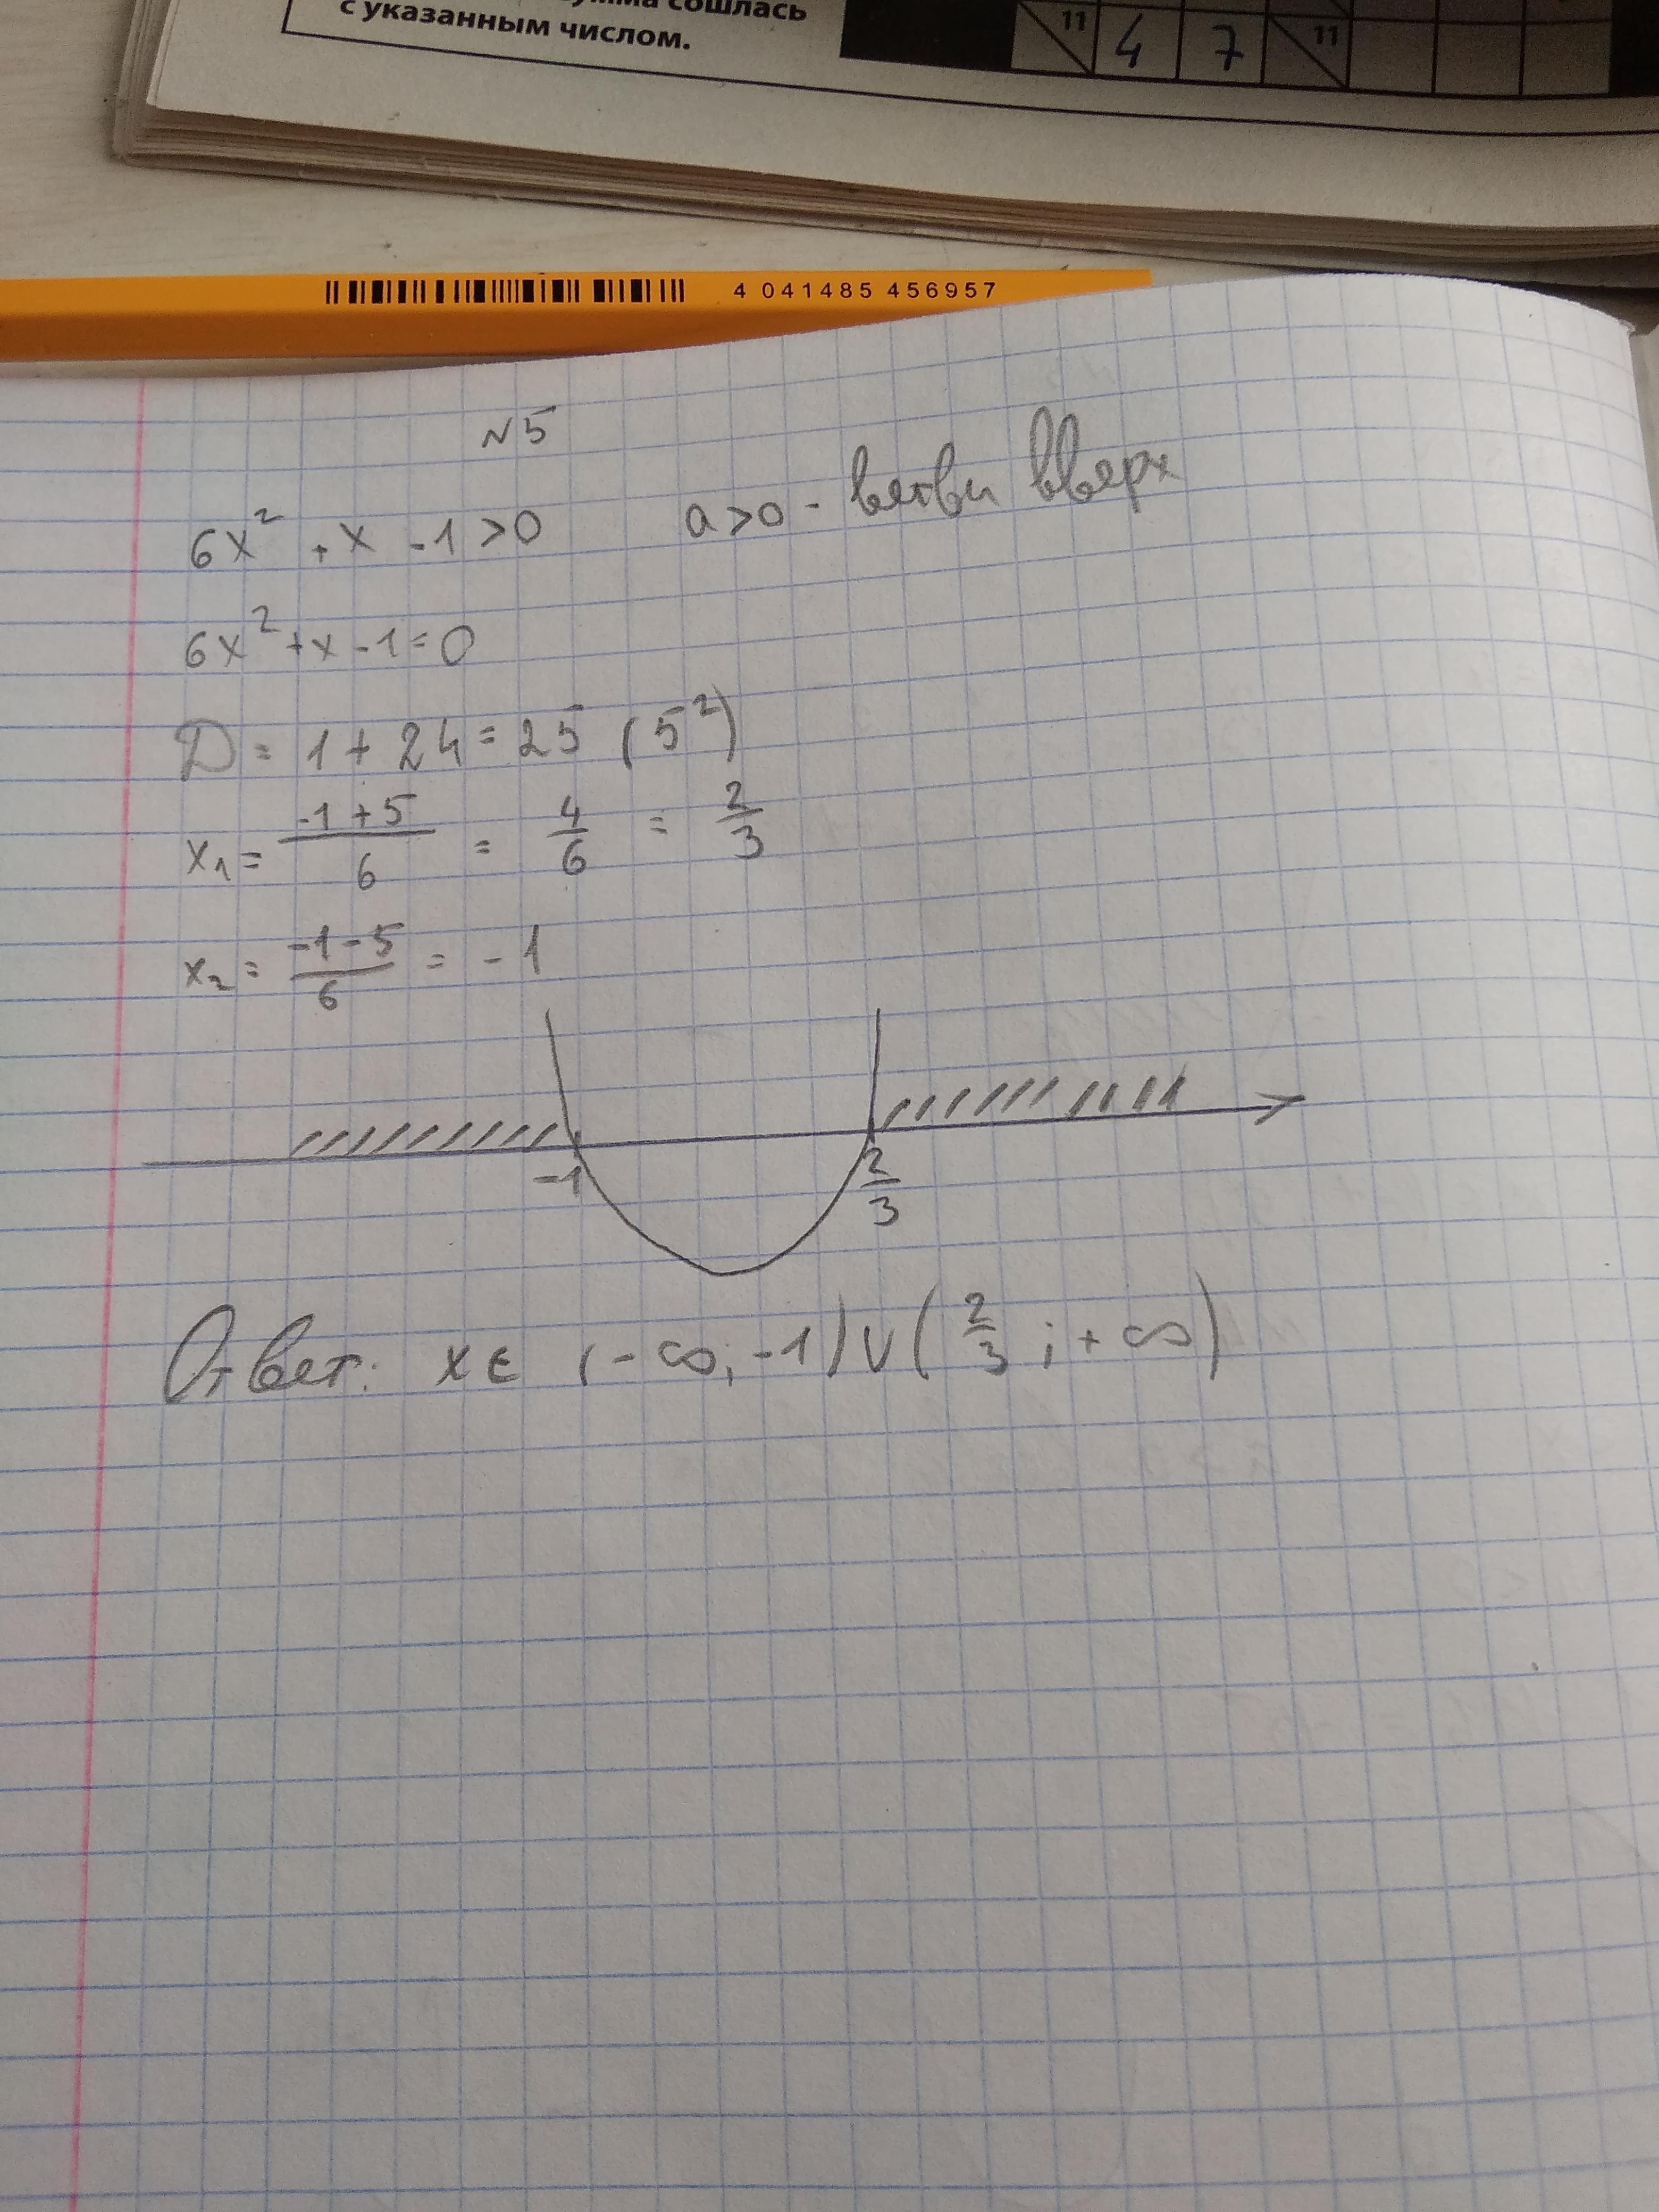 сошлась
с указанным числом.
11 4 7 11
4 041485 456957
№5
6x² + x - 1 > 0 a > 0 - ветви вверх
6x² + x - 1 = 0
D = 1 + 24 = 25 (5²)
x₁ = (-1+5)/6 = 4/6 = 2/3
x₂ = (-1-5)/6 = -1
-1 2/3
Ответ: x ∈ (-∞; -1) ∪ (2/3; +∞)